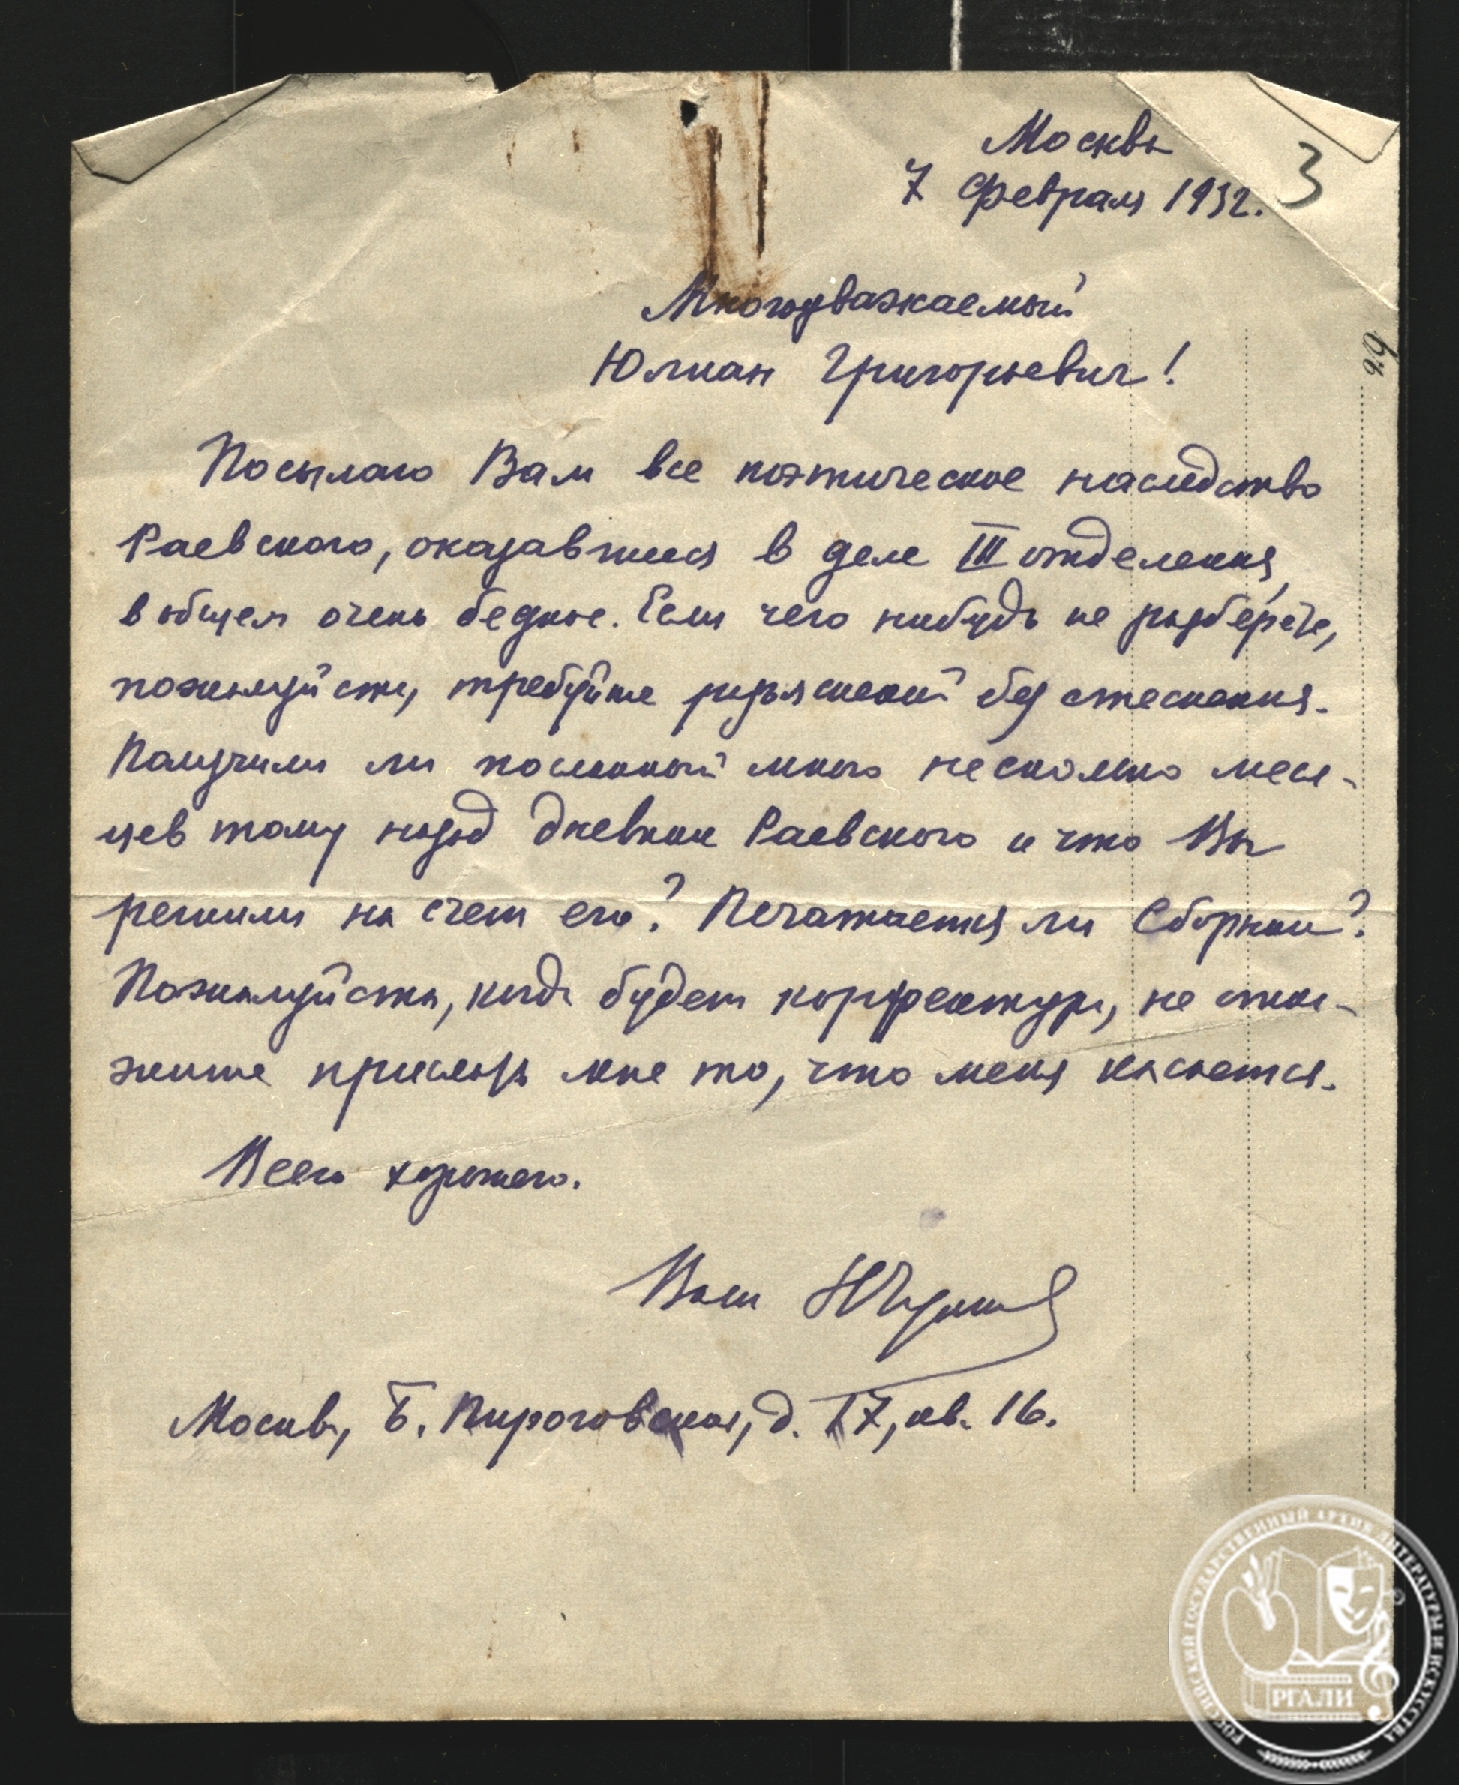 Москва
7 февраля 1932.
3
Многоуважаемый
Юлиан Григорьевич!
Посылаю Вам все поэтическое наследство
Раевского, оказавшееся в деле III отделения,
в общем очень бедное. Если чего нибудь не разберёте,
пожалуйста, требуйте разъяснений без стеснения.
Получили ли посланный мною несколько меся-
цев тому назад дневник Раевского и что Вы
решили на счет его? Печатается ли Сборник?
Пожалуйста, когда будет корректура, не отка-
жите прислать мне то, что меня касается.
Всего хорошего.
Ваш
Москва, Б. Пироговская, д. 17, кв. 16.
РОССИЙСКИЙ ГОСУДАРСТВЕННЫЙ АРХИВ ЛИТЕРАТУРЫ И ИСКУССТВА
РГАЛИ